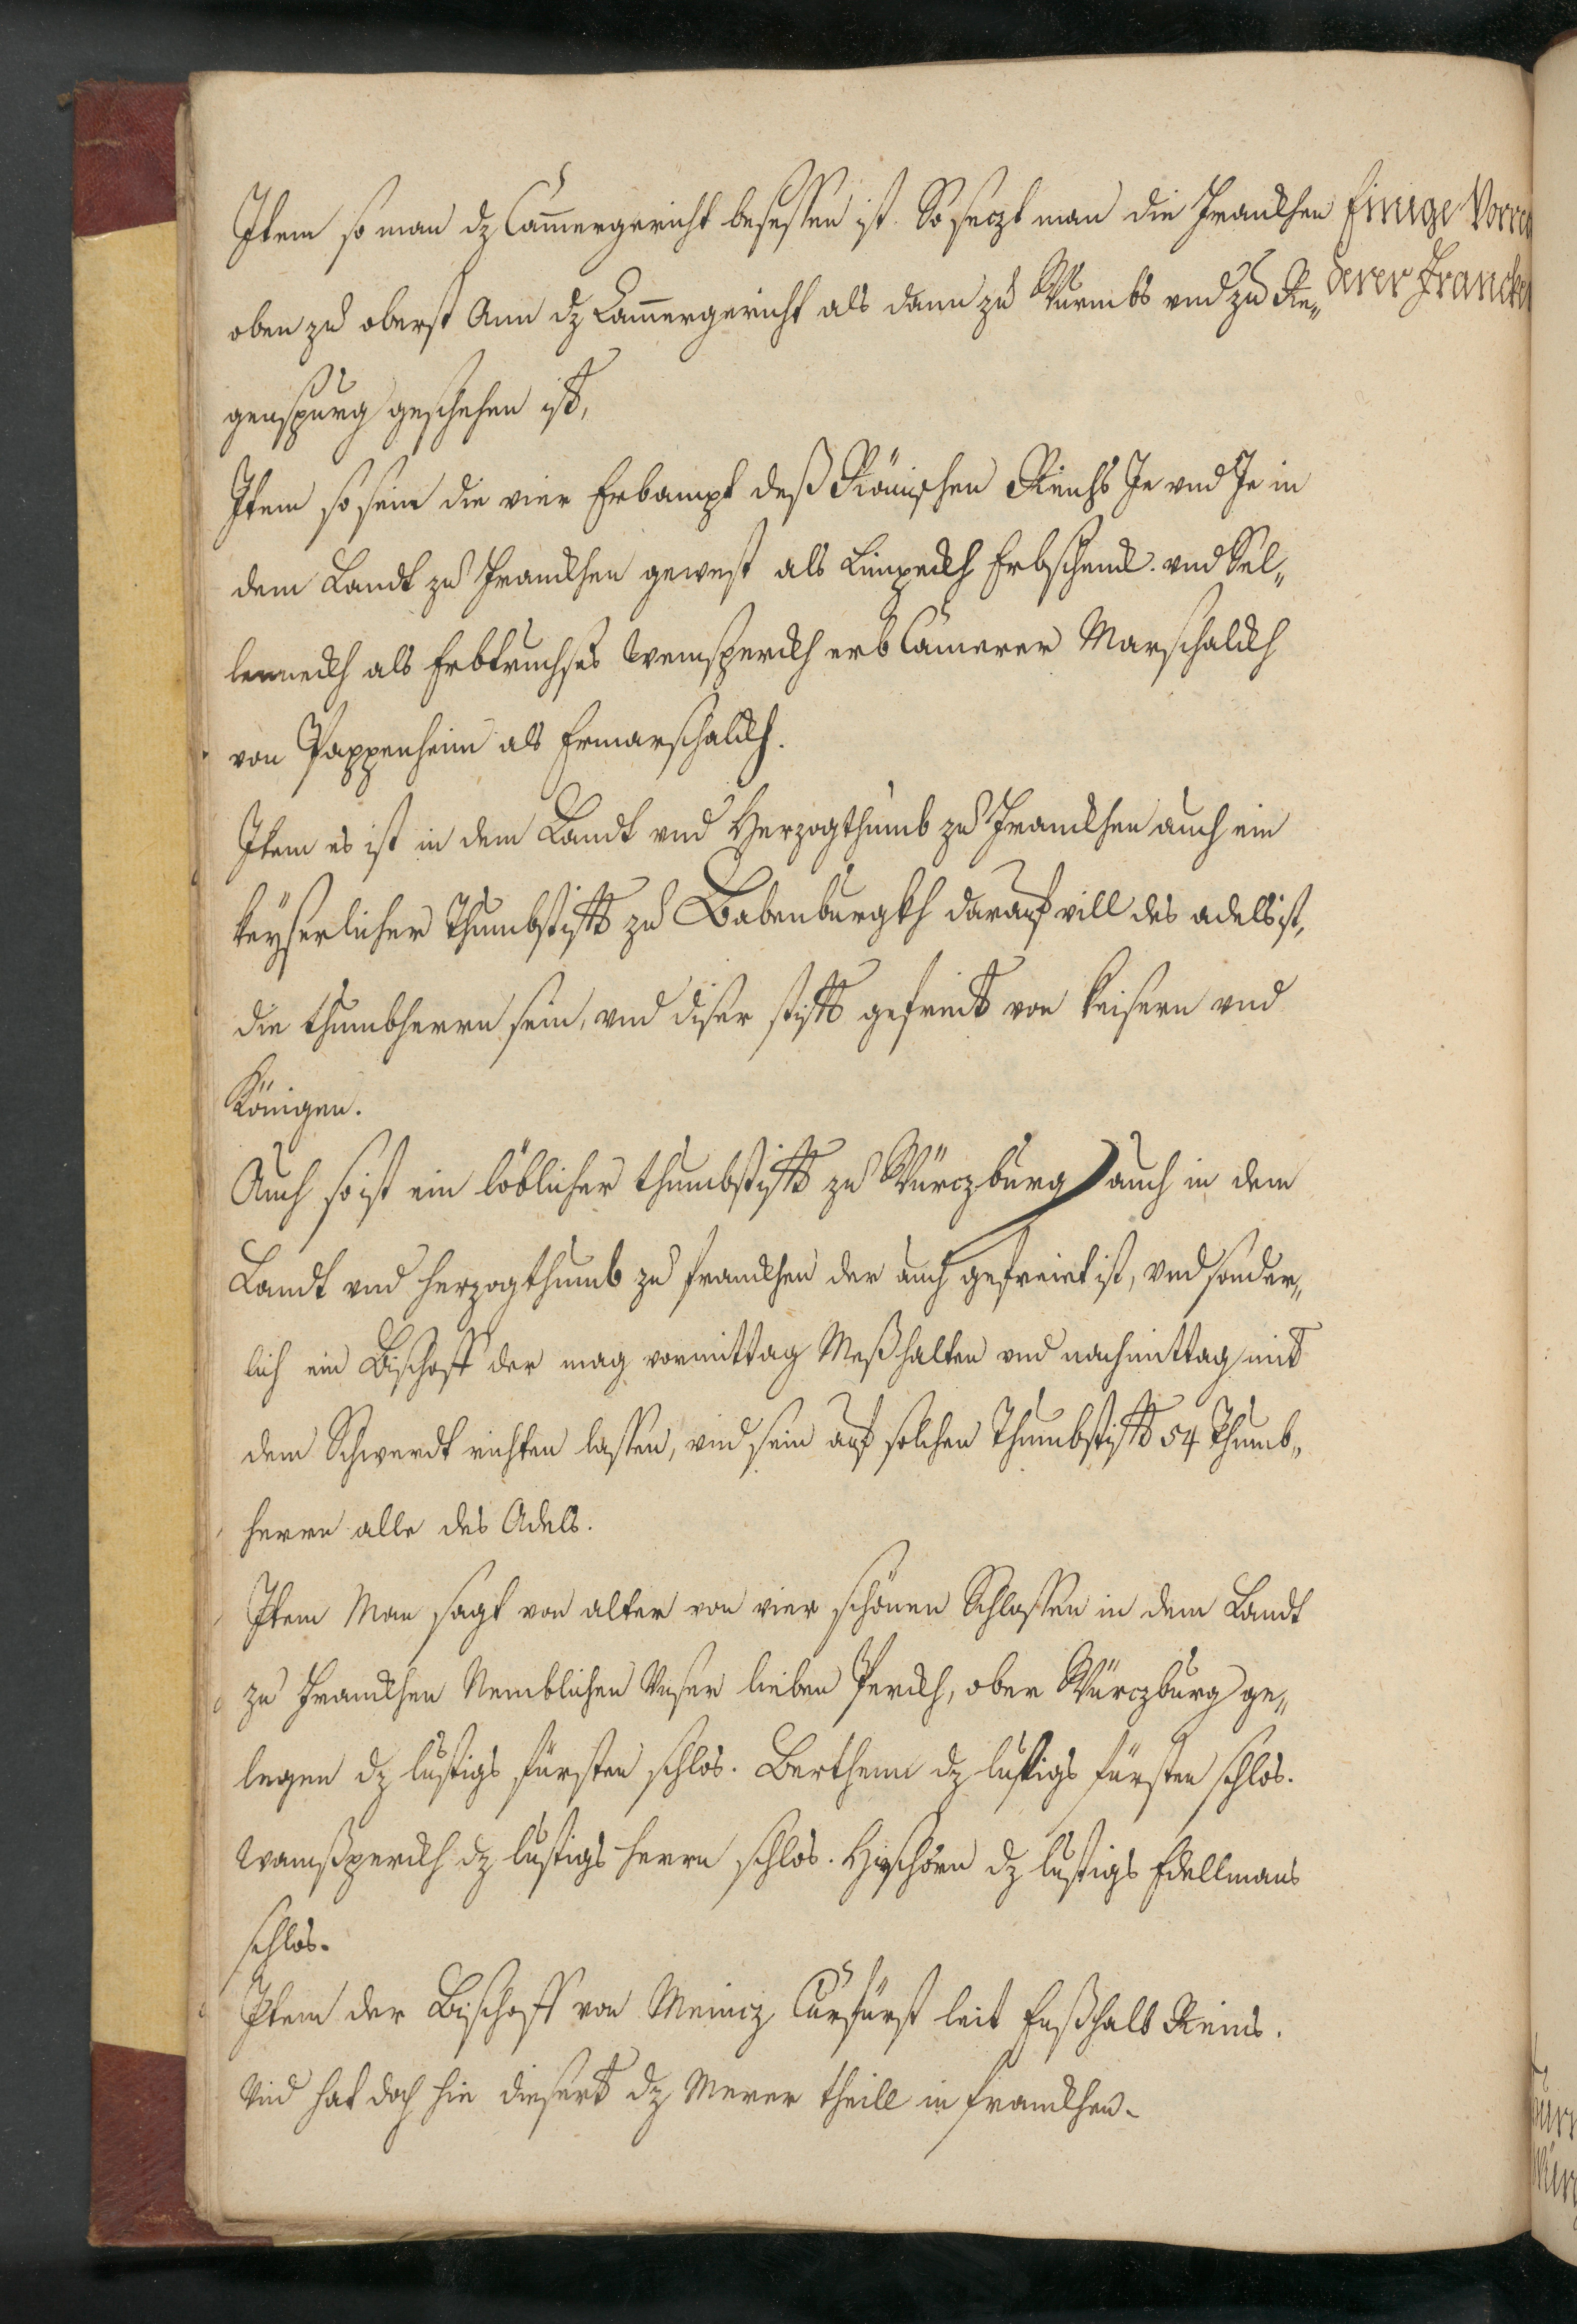 Item so man dz Cammergericht besessen ist. So seczt man die Franckhen
oben zu oberst Ann dz Cammergericht als dann zu Wurmbs vnd zu Re„
genspurg geschehen ist,
Item so sein die vier Erbampt deß Römischen Reichs Je vnd Je in
dem Landt zu Franckhen gewest als Limpeckh Erbschenck. vnd Sel„
lenneckh als Erbtruchses Weinsperckh erb Camerer Marschalckh
von Pappenheim als Ermarschalckh.
Item es ist in dem Landt vnd Herzogthumb zu Franckhen auch ein
keyserlicher Thumbstifft zu Babenburgkh darauf vill des adels ist,
die thumbherrn sein, vnd diser stifft gefreit von keisern vnd
Königen.
Auch so ist ein löblicher thumbstifft zu Würczburg auch in dem
Landt vnd herzogthumb zu franckhen der auch gefreiet ist, vnd sonder„
lich ein Bischoff der mag vormittag Meß halten vnd nachmittag mit
dem Schwerdt richten lassen, vnd sein auf solchen Thumbstifft 54 Thumb„
herrn alle des Adels.
Item Man sagt von alter von vier schönen Schlossen in dem Landt
zu Franckhen Nemblichen Vnser lieben Perckh, ober Würczburg ge„
legen dz lustigs fürsten schlos. Berthem dz lustigs fürsten schlos.
Wamßperckh dz lustigs herrn schlos. Hirschorn dz lustigs Edellmans
schlos.
Item der Bischoff von Meincz Curfürst leit Enßhalb Reins.
Vnd hat doch hie dieserts dz Merer theill in franckhen.
Einige Vorre
derer Francke